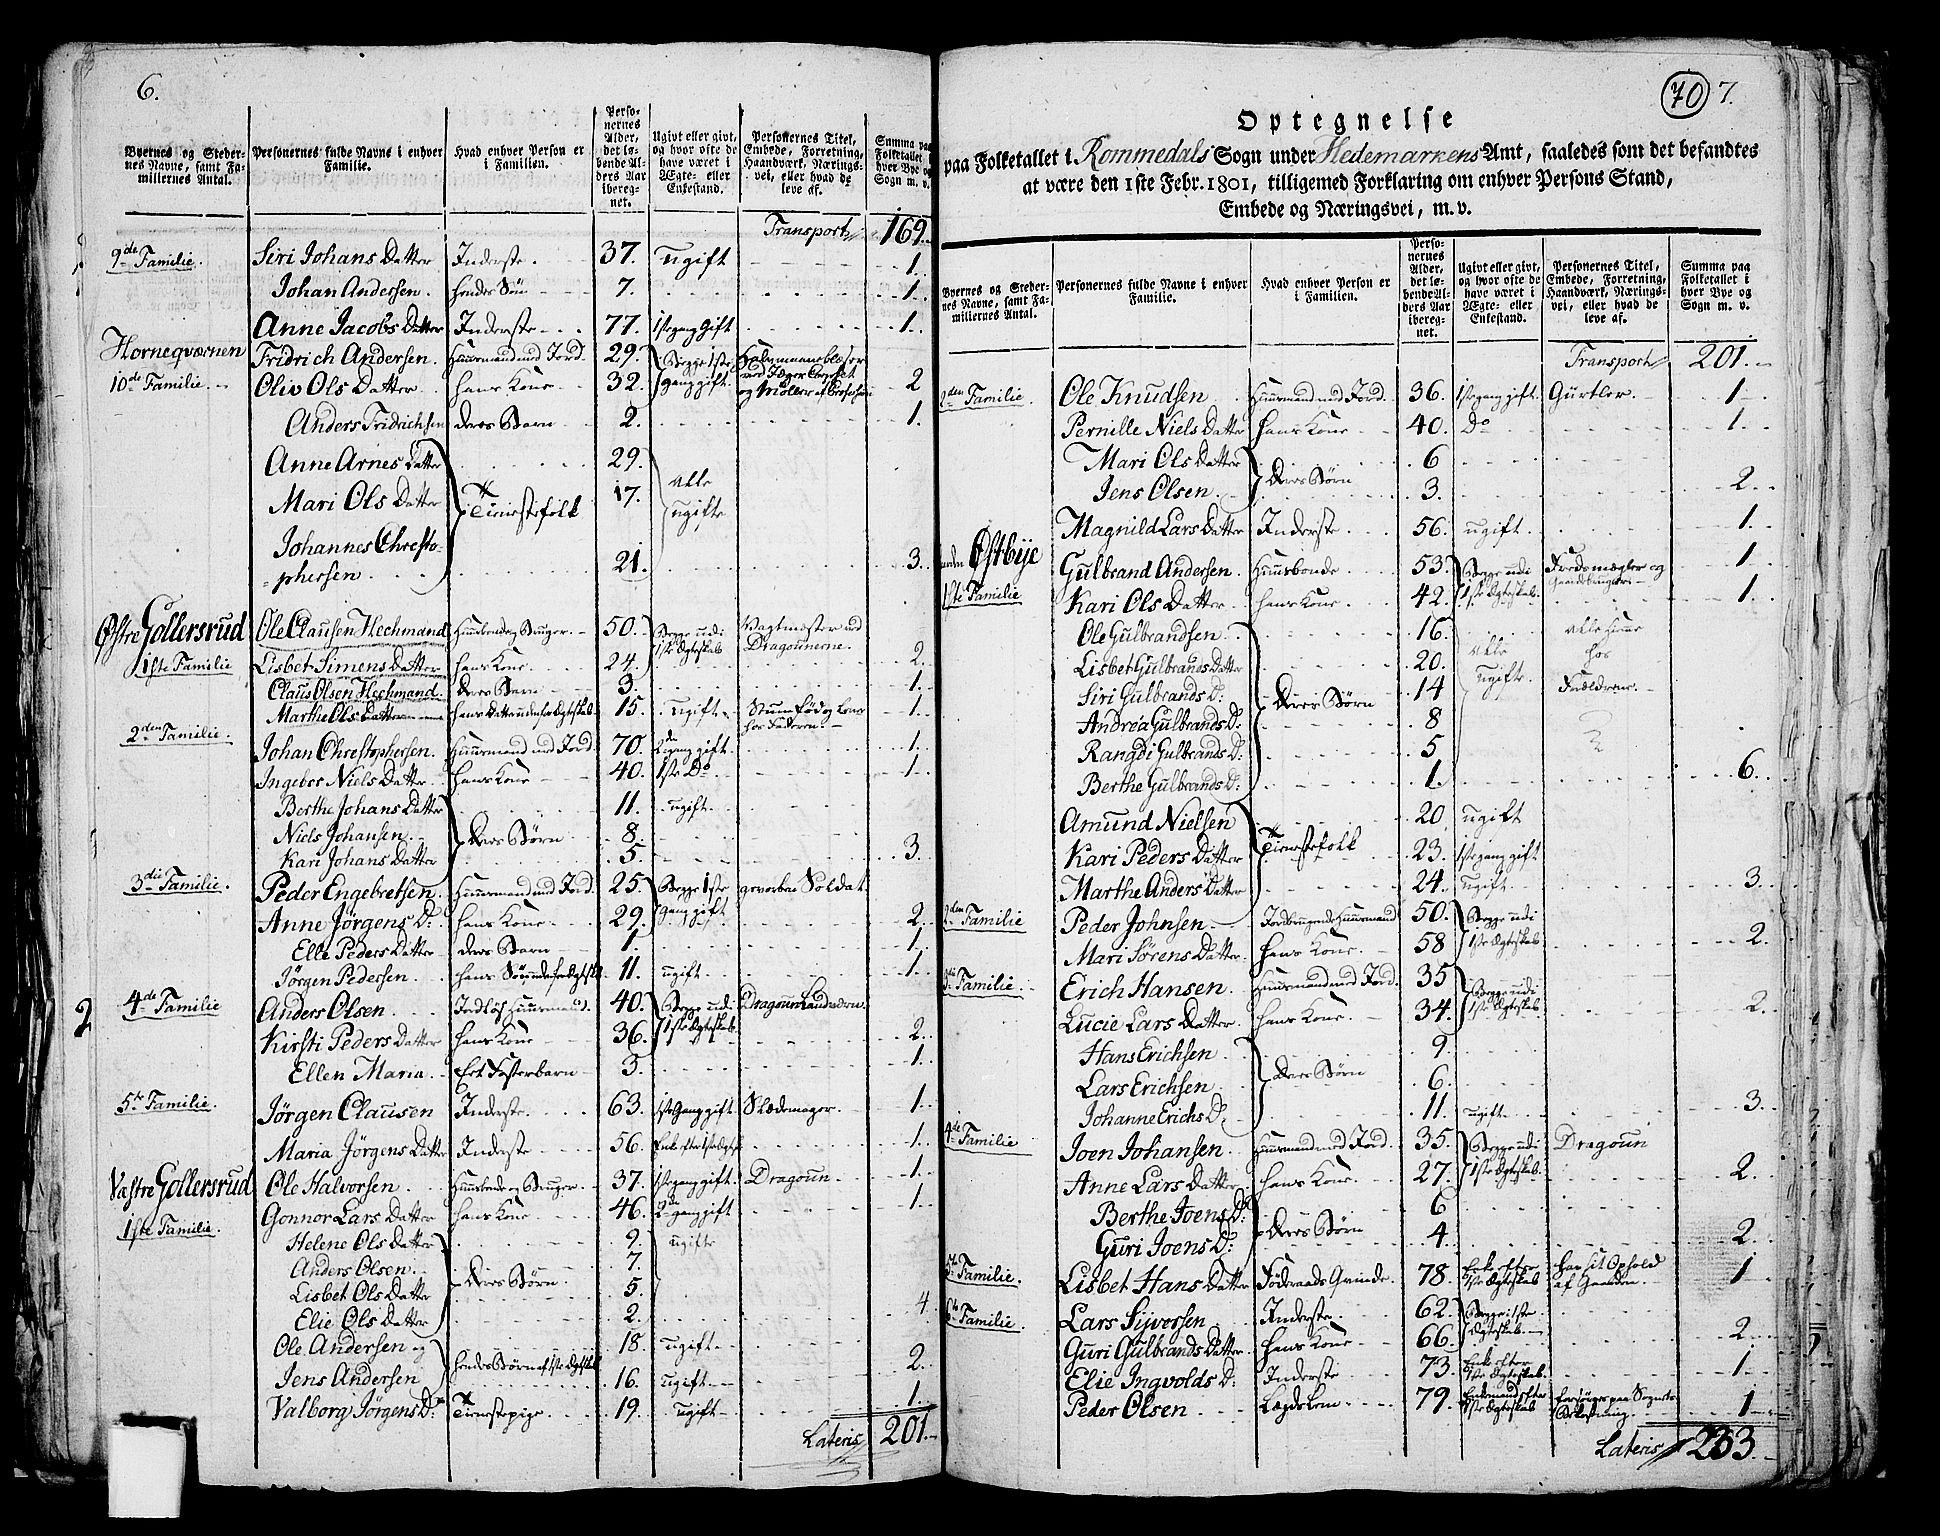 6.
Byernes og Stedernes Navne, samt Familliernes Antal.
Personernes fulde Navne i enhver Familie.
Hvad enhver Person er i Familien.
Personernes Alder, det løbende Alders Aar iberegnet.
Ugivt eller givt, og hvor ofte de have været i Ægte- eller Enkestand.
Personernes Titel, Embede, Forretning, Haandværk, Næringsvei, eller hvad de leve af.
Summa paa Folketallet i hver Bye og Sogn m. v.
Transport 169.
9de Familie. Siri Johans Datter Inderste. 37. ugift 1.
Johan Andersen. hendes Søn 7. 1.
Anne Jacobs Datter Inderste 77. 1ste gang Gift 1.
Horneqværnen Fridrich Andersen. Huusmand med Jord. 29. Begge 1ste
10de Familie. Oliv Ols Datter. hans Kone 32. gang gift 2
Anders Fridrichsen deres Barn 2. 1.
Anne Arnes Datter 29.
Mari Ols Datter Tienestefolk 17. alle ugifte
Johannes Christo-
phersen. 21. 3.
Østre Gollersrud Ole Clausen Hechmand Huusbonde og Bruger. 50. Begge udi Vagtmester ved
1ste Familie Lisbet Simens Datter hans Kone. 24. 1ste Ægteskab Dragounerne. 2.
Claus Olsen Hechmand. deres Barn 3. 1.
Marthe Ols Datter hans Datter uden for Ægteskab. 15. ugift hos Faderen 1.
2den Familie. Johan Christophersen. Huusmand med Jord 70. 2den gang gift 1.
Ingebor Niels Datter hans Kone 40. 1ste Do 1.
Berthe Johans Datter 11. ugift.
Niels Johansen. deres Børn 8.
Kari Johans Datter 5. 3.
3die Familie. Peder Engebretsen. Huusmand med Jord. 25. Begge 1ste gevorben Soldat.
Anne Jørgens D: hans Kone. 29. gang gift 2.
Elle Peders Datter deres Barn 1. 1.
Jørgen Pedersen. hans Søn uden for Ægteskab 11. ugift. 1.
4de Familie Anders Olsen Jordløs Huusmand. 40. Begge udi Dragoun Landværn.
Kirsti Peders Datter hans Kone 36. 1ste Ægteskab 2.
Ellen Maria. Et Fosterbarn 3. 1.
5te Familie. Jørgen Clausen Inderste. 63. 1ste Gang gift Slædemager. 1.
Maria Jørgens Datter Inderste 56. Enke efter 1ste Ægtesk. 1.
Væstre Gollersrud Ole Halvorsen Huusbonde og Bruger. 37. 1ste gang gift Dragoun. 1.
1ste Familie. Gonnor Lars Datter hans Kone 46. 2den gang gift 1.
Helene Ols Datter 9. ugifte
Anders Olsen. 7.
Lisbet Ols Datter deres Børn. 5.
Elie Ols Datter 2. 4.
Ole Andersen og 18. ugift.
Jens Andersen hendes Børn af 1ste Ægteskab 16. ugift. 2.
Valborg Jørgens D: Tienestepige. 19. ugift 1.
Lateris 201.
70 7.
Optegnelse
paa Folketallet i Rommedals Sogn under Hedemarkens Amt, saaledes som det befandtes
at være den 1ste Febr. 1801, tilligemed Forklaring om enhver Persons Stand,
Embede og Næringsvei, m. v.
Byernes og Stedernes Navne, samt Familliernes Antal.
Personernes fulde Navne i enhver Familie.
Hvad enhver Person er i Familien.
Personernes Alder, det løbende Alders Aar iberegnet.
Ugivt eller givt, og hvor ofte de have været i Ægte- eller Enkestand.
Personernes Titel, Embede, Forretning, Haandværk, Næringsvei, eller hvad de leve af.
Summa paa Folketallet i hver Bye og Sogn m. v.
Transport 201.
2den Familie. Ole Knudsen Huusmand med Jord. 36. 1ste gang gift. Gürtler. 1.
Pernille Niels Datter hans Kone 40. Do 1.
Mari Ols Datter 6
Jens Olsen. deres Børn 3. 2.
Magnild Lars Datter Inderste 56. ugift. 1.
Østbye Gulbrand Andersen. Huusbonde 53. Begge udi Fredsmægler og 1.
1ste Familie Kari Ols Datter. hans Kone. 42. 1ste Ægteskab. 1.
Ole Gulbrandsen. 16. alle hiemme
Lisbet Gulbrands Datter 20. alle hos
Siri Gulbrands D: deres Børn 14 ugifte. Forældrene.
Andrea Gulbrands D: 8
Rangdi Gulbrands D: 5
Berthe Gulbrands D: 1. 6.
Amund Nielsen 20 ugift
Kari Peders Datter Tienestefolk 23. 1ste gang gift
Marthe Anders Datter 24. ugift. 3.
2den Familie Peder Johnsen Jordbrugende Huusmand 50. Begge udi
Mari Sørens Datter. hans Kone. 58 1ste Ægteskab 2.
3die Familie. Erich Hansen Huusmand med Jord. 35 Begge udi
Lucie Lars Datter. hans Kone. 34. 1ste Ægteskab. 2.
Hans Erichsen 9.
Lars Erichsen deres Børn 6.
Johanne Erichs D: 11. ugift. 3.
4de Familie Joen Johansen Huusmand med Jord 35. Begge udi Dragoun
Anne Lars Datter hans Kone 27. 1ste Ægteskab. 2.
Berthe Joens D: 6
Guri Joens D: deres Børn 4. 2.
5te Familie. Lisbet Hans Datter Føderaads Qvinde. 78. Enke efter 1ste Ægteskab har sit Ophold af Gaarden. 1
6te Familie. Lars Sijversen Inderste 62. Begge i 1ste
Guri Gulbrands Datter hans Kone 66. Ægteskab. 2.
Elie Ingvolds D: Inderste 73. Enke efter 1ste Ægteskab. 1.
Peder Olsen Lægdslem. 79. Enkemand efter 1ste Ægteskab forsørges paa Sognets Bekostning. 1
Lateris 233.